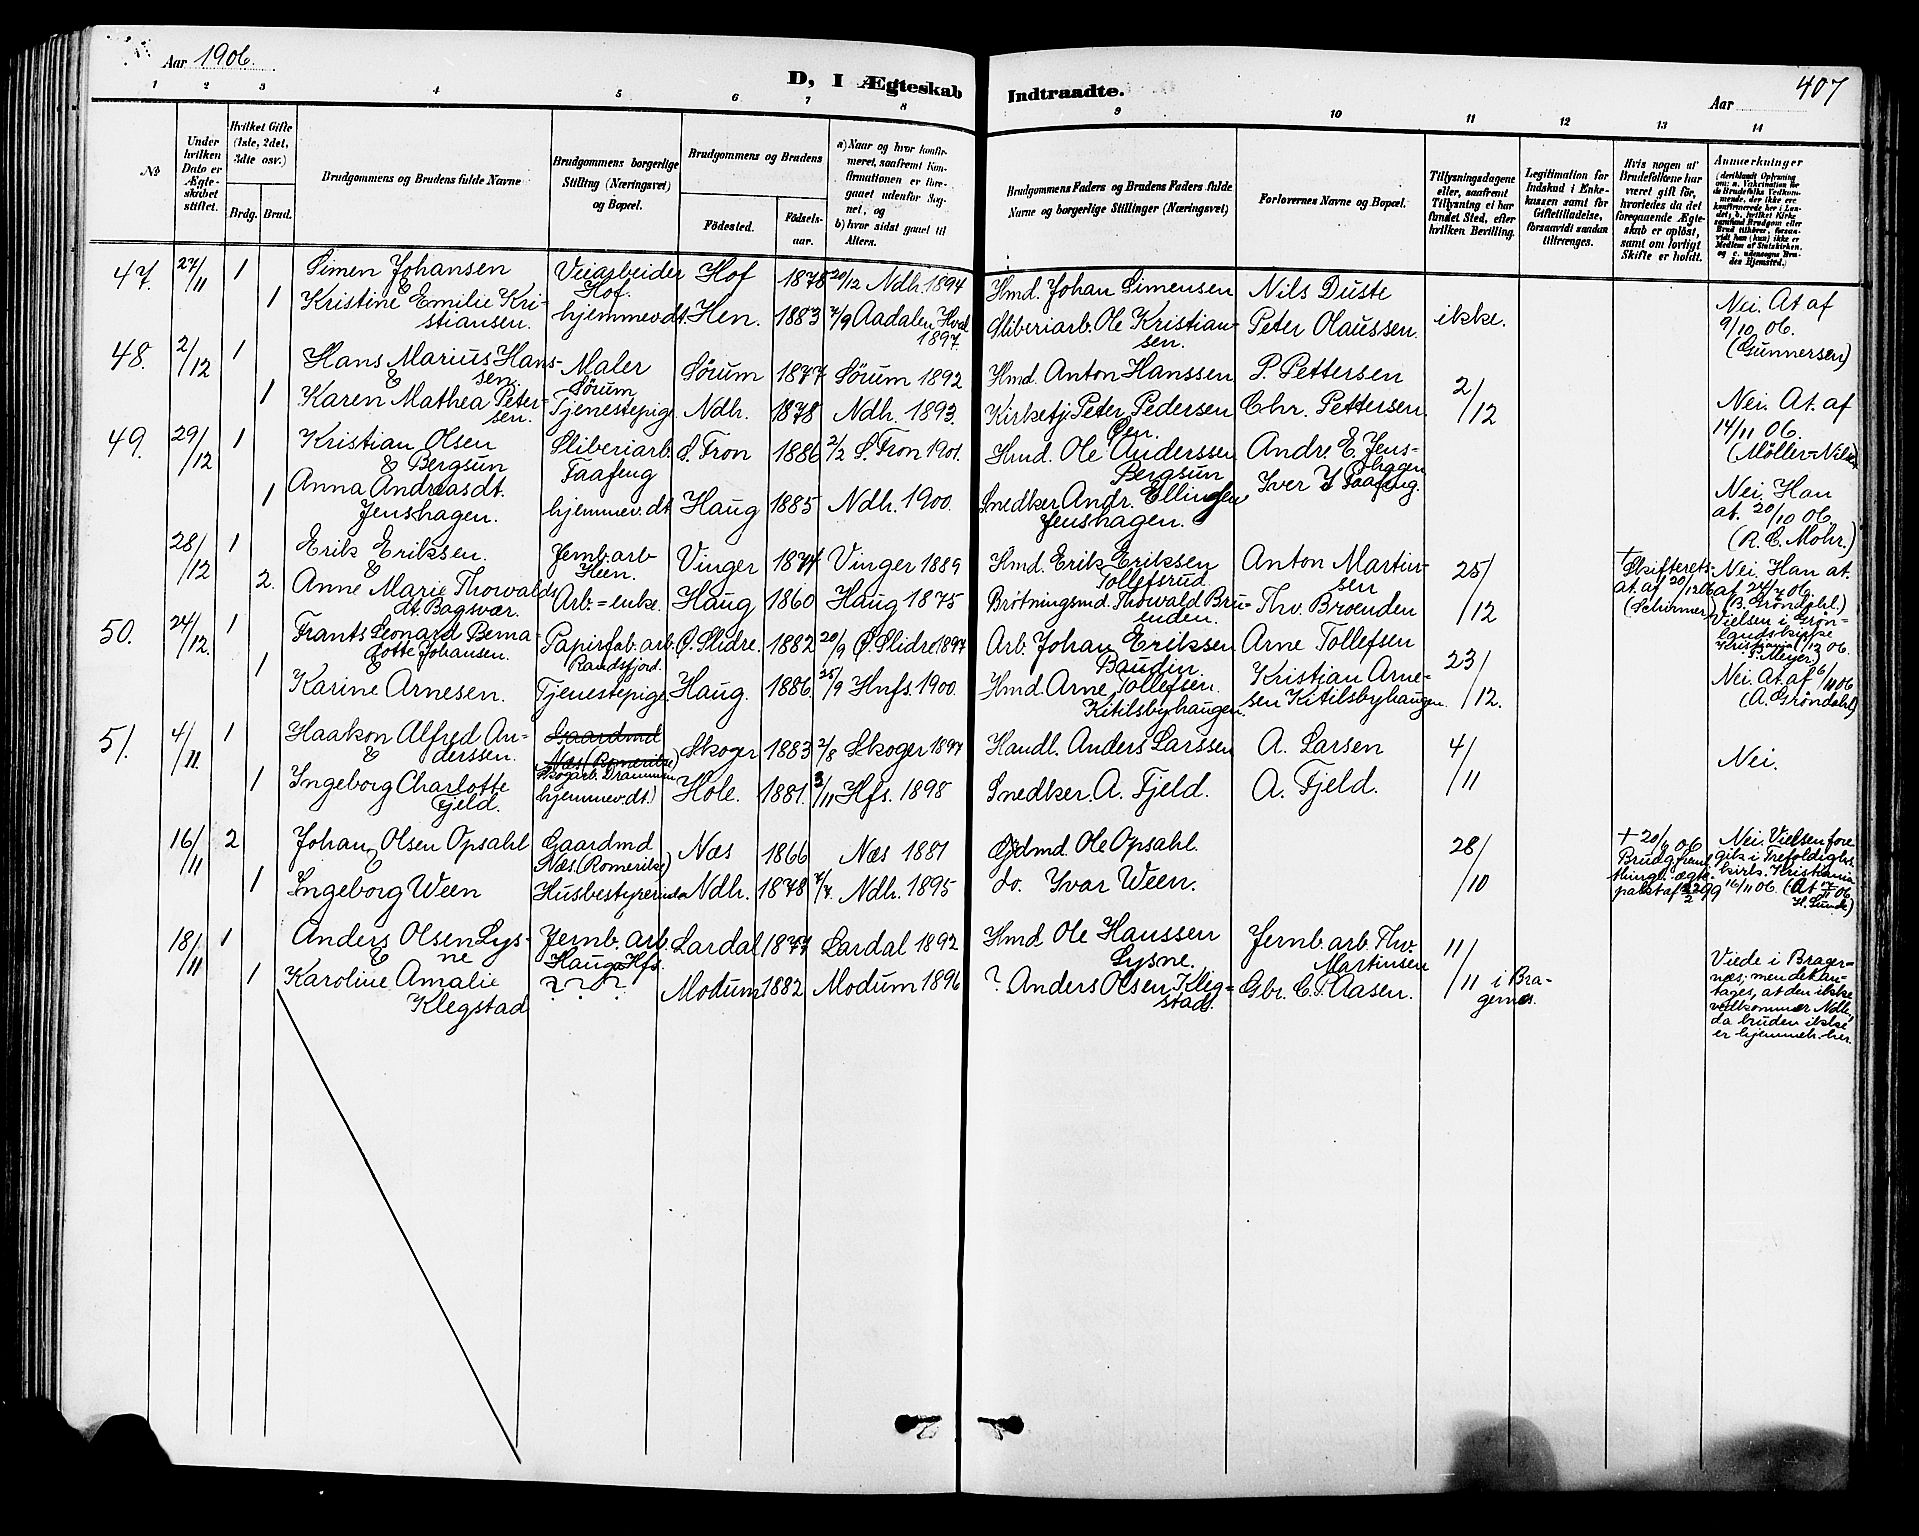 Aar 1906.
D, I Ægteskab Indtraadte.
Aar
407
1 2 3 4 5 6 7 8 9 10 11 12 13 14
No
Under hvilken Dato er Ægteskabet stiftet.
Hvilket Gifte (1ste, 2det, 3die osv.)
Brdg. Brud.
Brudgommens og Brudens fulde Navne
Brudgommens borgerlige Stilling (Næringsvei) og Bopæl.
Brudgommens og Brudens
Födested. Födselsaar.
a) Naar og hvor konfirmeret, saafremt Konfirmationen er foregaaet udenfor Sognet, og
b) hvor sidst gaaet til Alters.
Brudgommens Faders og Brudens Faders fulde Navne og borgerlige Stillinger (Næringsvei)
Forlovernes Navne og Bopæl.
Tillysningsdagene eller, saafremt Tillysning ei har fundet Sted, efter hvilken Bevilling.
Legitimation for Indskud i Enkekassen samt for Giftetilladelse, forsaavidt saadan tiltrænges.
Hvis nogen af Brudefolkene har været gift før, hvorledes da det foregaaende Ægteskab er oplöst, samt om lovligt Skifte er holdt.
Anmærkninger
47. 27/11 1 Simen Johansen Veiarbeider Hof. Hof 1878 20/12 Ndh. 1894 Hmd. Johan Simensen Nils Duste ikke. Nei. At af 9/10 06. (Gunnersen)
& 1 Kristine Emilie Kristiansen. hjemmev.dt. Hen. 1883 4/9 Aadalen Hval 1897. Sliberiarb. Ole Kristiansen. Peter Olaussen.
48. 2/12 1 Hans Marius Hanssen. Maler Sørum Sørum 1877 Sørum 1892 Hmd. Anton Hanssen P. Pettersen 2/12 Nei. At. af 14/11 06.
& 1 Karen Mathea Petersen. Tjenestepige Ndh. 1878 Ndh. 1893. Kirketj. Peter Pedersen Øen. Chr. Pettersen.
49. 29/12 1 Kristian Olsen Bergsun Sliberiarb. Taafeng S. Fron 1886 2/2 S. Fron 1901. Hmd. Ole Anderssen Bergsun Andr. E. Jenshagen Nei. Han at. 20/10 06. (R. C. Mohr.)
& 1 Anna Andreasdt. Jenshagen. hjemmev.dt. Haug 1885 Ndh. 1900. Snedker Andr. Ellingsen Jenshagen. Iver Taafeng.
28/12 1 Erik Eriksen. Jernb.arb Heen. Vinger 1874 Vinger 1889 Hmd. Erik Eriksen Tollefsrud. Anton Martinsen 25/12 + Skifterets-at. af 20/12 06 (Schirmer) Nei. Han at. af 24/7 06. (B. Gröndahl.) Vielsen i Grønlandskirke Kristiania
& 2. Anne Marie Thorvaldsdt. Bagsvær. Arb.=enke. Haug 1860 Haug 1875 Brötningsmd. Thorvald Bruenden. Thv. Broenden
50. 24/12 1 Frants Leonard Bernadotte Johansen. Papirfab.arb. Randsfjord. Ø. Slidre. 1882 20/9 Ø. Slidre 1897 Arb. Johan Eriksen Baudin Arne Tollefsen 23/12. Nei. At. af 6/11 06 (A. Gröndahl)
& 1 Karine Arnesen. Tjenestepige Haug. 1886. 25/9 Hnfs. 1900. Hmd. Arne Tollefsen. Kitilsbyhaugen. Kristian Arnesen Kitilsbyhaugen
51. 4/11. 1 Haakon Alfred Anderssen. Gaardmd Næs (Romerike) Skogarb. Drammen Skoger 1883 2/8 Skoger 1897 Handl. Anders Larssen A. Larsen 4/11 Nei.
& 1 Ingeborg Charlotte Fjeld. hjemmev.dt.) Hole. 1881. 3/11 Hfs. 1898 Snedker. A. Fjeld. A. Fjeld.
16/11 2 Johan Olsen Opsahl Gaardmd Næs (Romerike) Næs 1866 Næs 1881 Gdmd. Ole Opsahl. 28/10 + 20/6 06 Nei. Vielsen foregik i Trefoldighs.kirk. Kristiania 16/11 06.
& 1 Ingeborg Ween Husbestyrerinde Ndh. 1878 4/4 Ndh. 1895 do. Ivar Ween.
18/11 1 Anders Olsen Lysne Jernb. arb. Haug Hfs. Lardal 1877 Lardal 1892 Hmd. Ole Haussen Lysne. Jernb. arb. Thv. Martinsen 11/11 i Bragernes. Viede i Bragernæs; men det antages, at den ikke vedkommer Ndh., da bruden ikke er hjemmeh. her.
& 1 Karoline Amalie Klegstad ? ? ? Modum 1882 Modum 1896 ? Anders Olsen Klegstad. Gbr. C. Aasen.